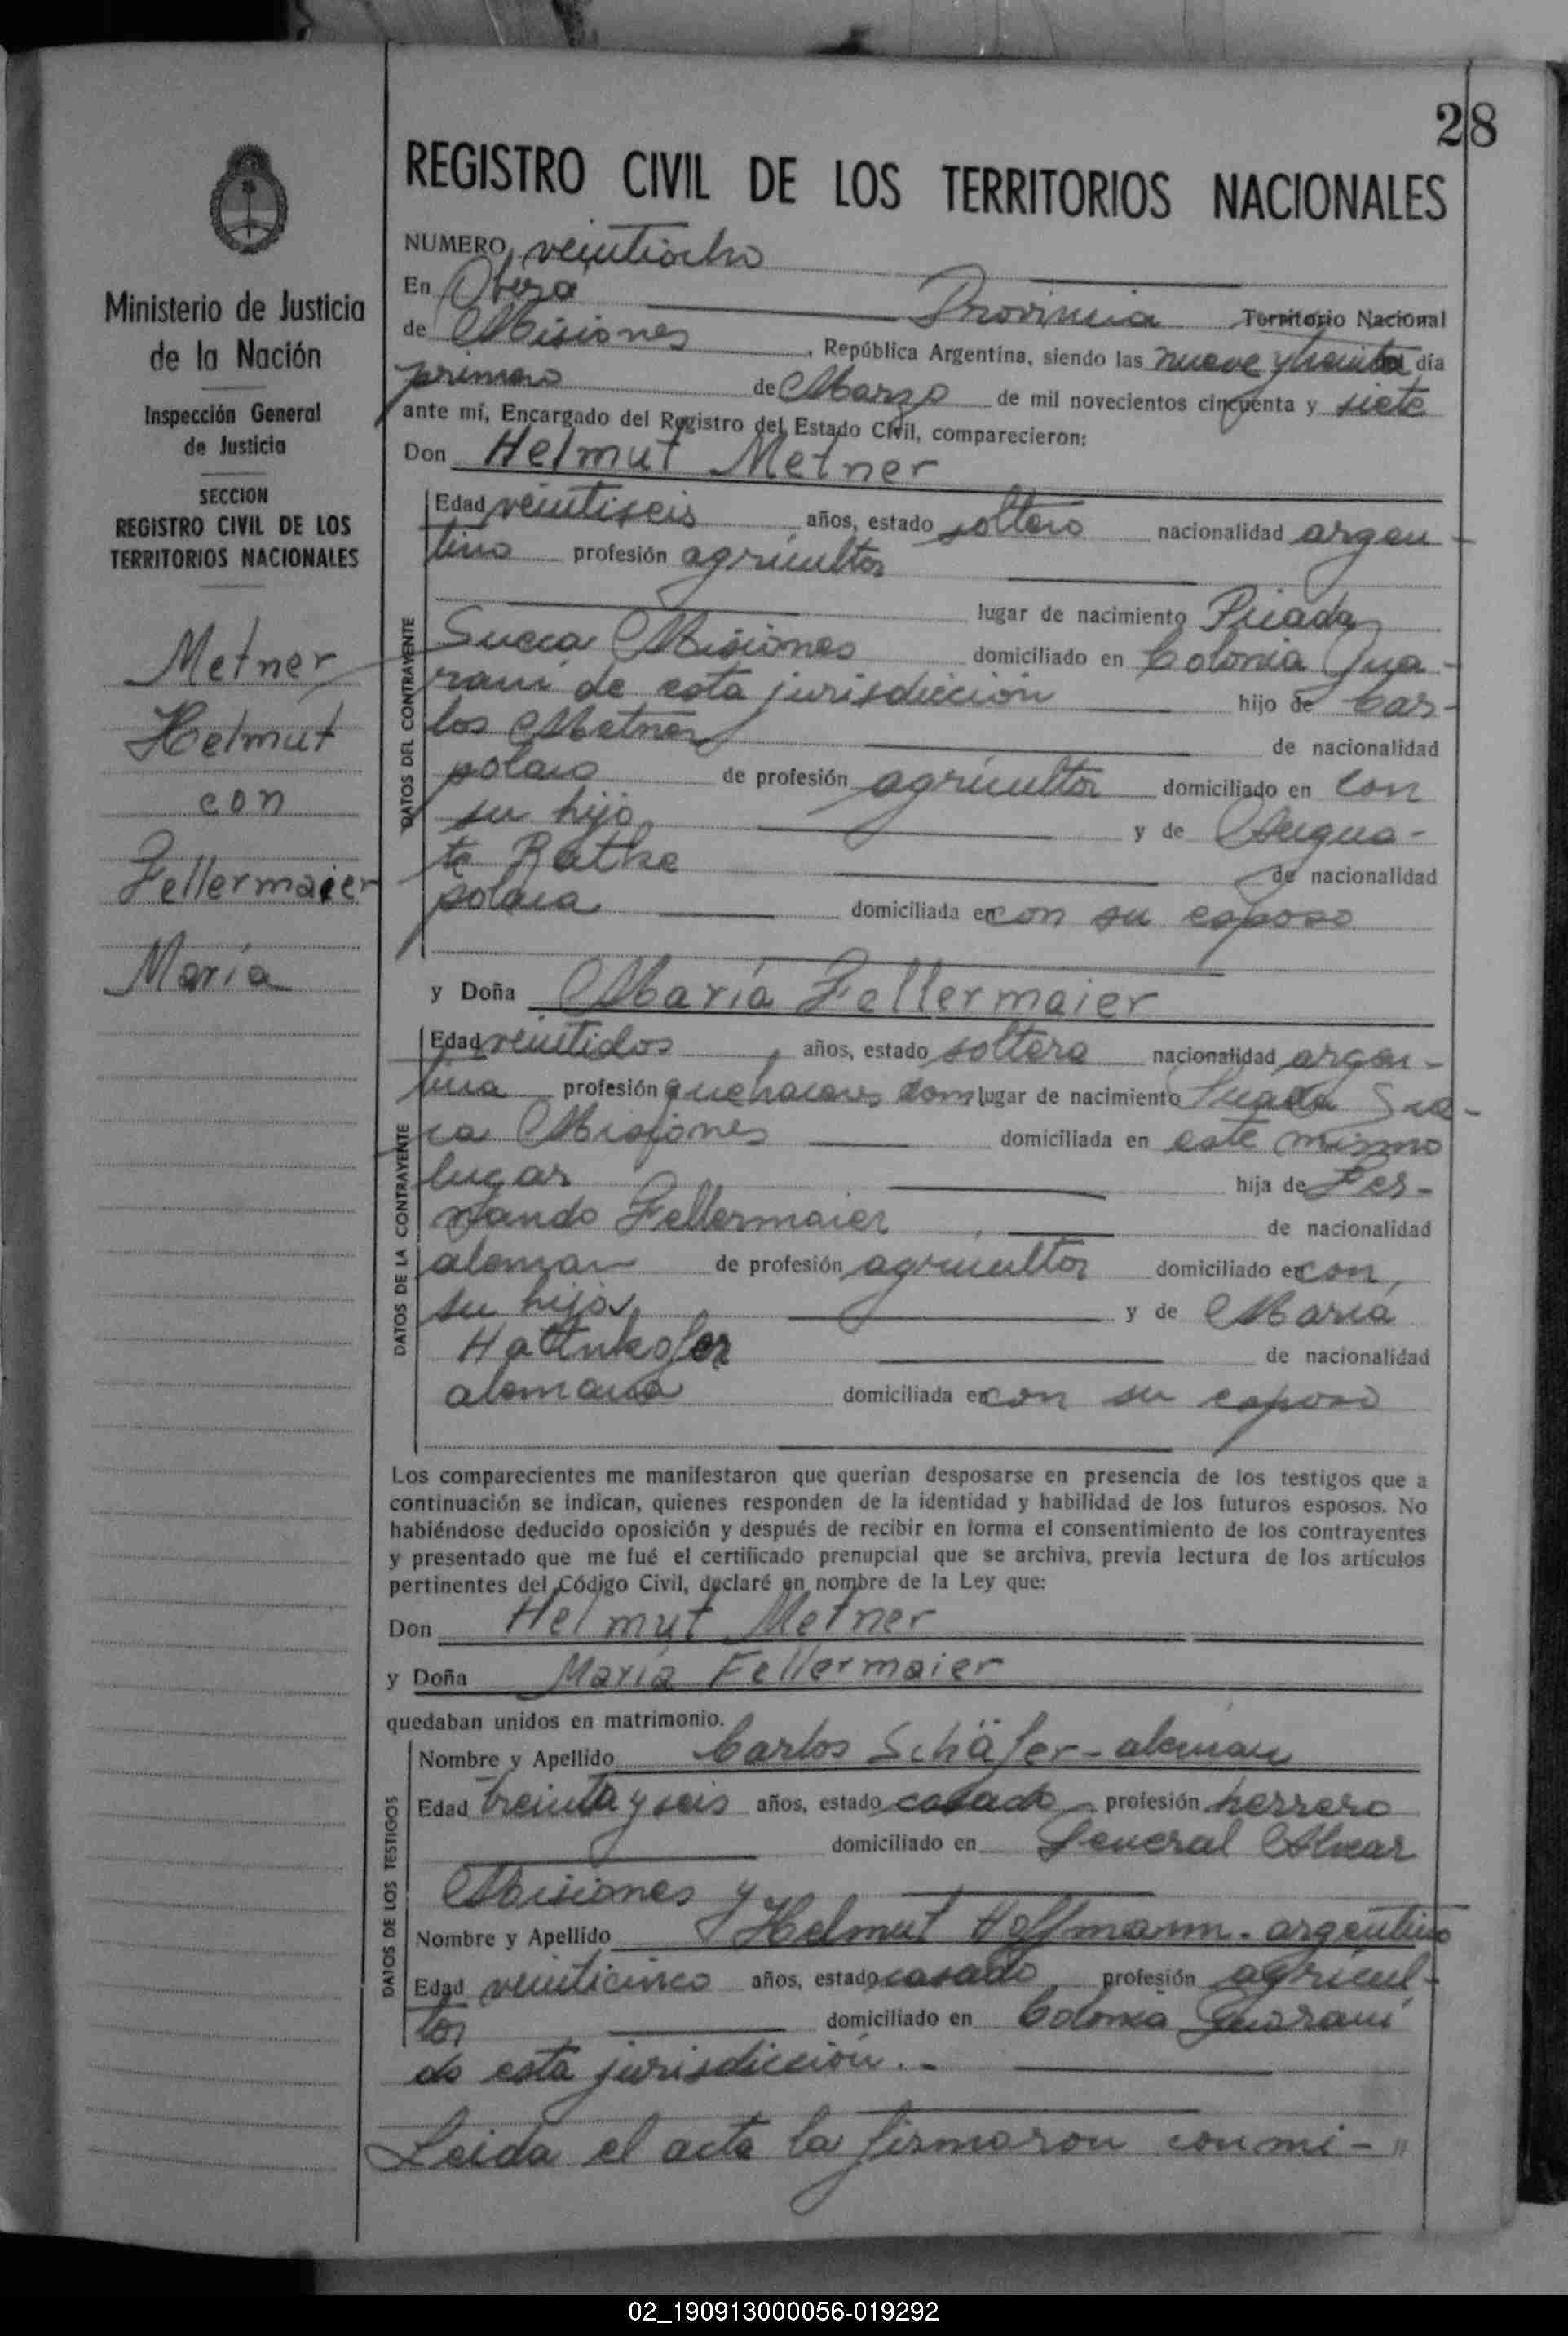 28
REGISTRO CIVIL DE LOS TERRITORIOS NACIONALES
Ministerio de Justicia
de la Nación
Inspección General
de Justicia
SECCION
REGISTRO CIVIL DE LOS
TERRITORIOS NACIONALES
Metner
Helmut
con
Fellermaier
María
NUMERO veintiocho
En Oberá Provincia Territorio Nacional
de Misiones, República Argentina, siendo las nueve y treinta día
primero de Marzo de mil novecientos cincuenta y siete
ante mí, Encargado del Registro del Estado Civil, comparecieron:
Don Helmut Metner
DATOS DEL CONTRAYENTE
Edad veintiseis años, estado soltero nacionalidad argen-
tino profesión agricultor
lugar de nacimiento Picada
Sueca Misiones domiciliado en Colonia Gua-
raní de esta jurisdicción hijo de Car-
los Metner de nacionalidad
polaco de profesión agricultor domiciliado en con
su hijo y de Augus-
ta Ratke de nacionalidad
polaca domiciliada en con su esposo
y Doña María Fellermaier
DATOS DE LA CONTRAYENTE
Edad veintidos años, estado soltera nacionalidad argen-
tina profesión quehaceres dom lugar de nacimiento Picada Sue-
ca Misiones domiciliada en este mismo
lugar hija de Fer-
nando Fellermaier de nacionalidad
aleman de profesión agricultor domiciliado en con
su hija y de María
de nacionalidad
alemana domiciliada en con su esposo
Los comparecientes me manifestaron que querían desposarse en presencia de los testigos que a
continuación se indican, quienes responden de la identidad y habilidad de los futuros esposos. No
habiéndose deducido oposición y después de recibir en forma el consentimiento de los contrayentes
y presentado que me fué el certificado prenupcial que se archiva, previa lectura de los artículos
pertinentes del Código Civil, declaré en nombre de la Ley que:
Don Helmut Metner
y Doña María Fellermaier
quedaban unidos en matrimonio.
DATOS DE LOS TESTIGOS
Nombre y Apellido Carlos Schäfer - aleman
Edad treinta y seis años, estado casado profesión herrero
domiciliado en General Alvear
Misiones y
Nombre y Apellido Helmut Hoffmann - argentino
Edad veinticinco años, estado casado profesión agricul-
tor domiciliado en Colonia Guaraní
de esta jurisdicción.-
Leida el acta la firmaron conmi-"
02_190913000056-019292